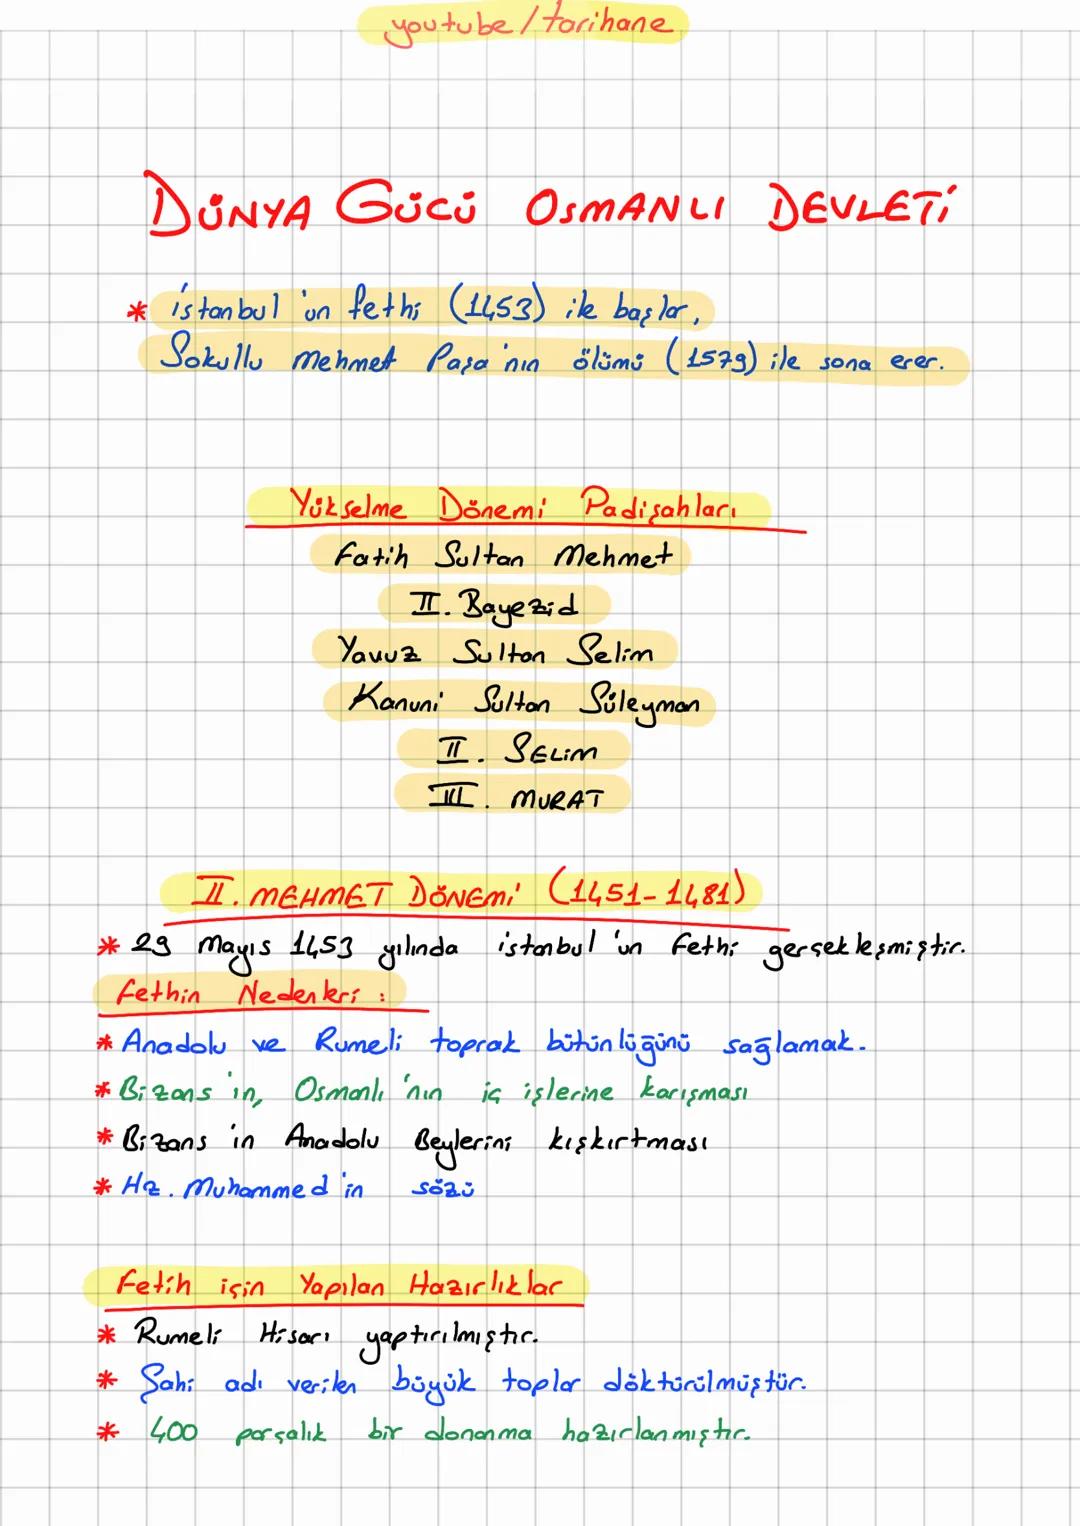 youtube/tarihane
DÜNYA GÜCÜ OSMANLI DEVLETİ
* İstanbul'un fethi (1453) ile başlar,
Sokullu Mehmet Paşa'nın ölümü (1579) ile sona erer.
Yükselme Dönemi Padişahları
Fatih Sultan Mehmet
II. Bayezid
Yavuz Sultan Selim
Kanuni Sultan Süleyman
II. SELİM
III. MURAT
II. MEHMET DÖNEMİ (1451-1481)
* 29 Mayıs 1453 yılında İstanbul'un Fethi gerçekleşmiştir.
Fethin Nedenleri :
* Anadolu ve Rumeli toprak bütünlüğünü sağlamak.
* Bizans'in, Osmanlı'nın iç işlerine karışması
* Bizans'in Anadolu Beylerini kışkırtması
* Hz. Muhammed'in sözü
Fetih için Yapılan Hazırlıklar
* Rumeli Hisarı yaptırılmıştır.
* Şahi adı verilen büyük toplar döktürülmüştür.
* 400 parçalık bir donanma hazırlanmıştır.